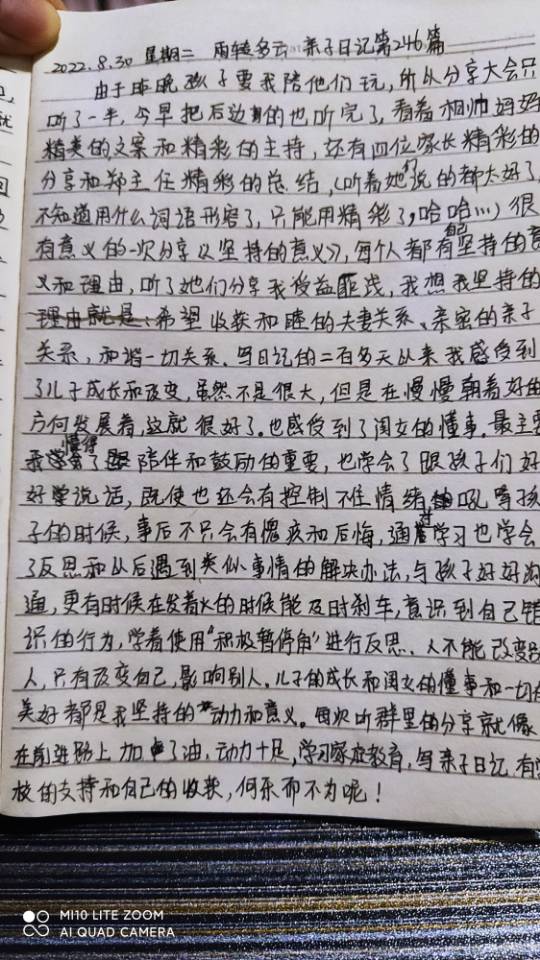 2022.8.30 星期二 雨转多云 亲子日记第246篇
由于昨晚孩子要我陪他们玩，所以分享大会只
听了一半，今早把后边的也听完了，看着相帅妈妈
精美的文案和精彩的主持，还有四位家长精彩的
分享和郑主任精彩的总结，(听着她们说的都太好了，
不知道用什么词语形容了，只能用精彩了，哈哈…)很
有意义的一次分享《坚持的意义》，每个人都有自己坚持的意
义和理由，听了她们分享我受益匪浅，我想我坚持的
理由就是：希望收获和睦的夫妻关系、亲密的亲子
关系，和谐一切关系。写日记的二百多天以来我感受到
了儿子成长和改变，虽然不是很大，但是在慢慢朝着好的
方向发展着，这就很好了。也感受到了闺女的懂事。最主要
我懂得了陪伴和鼓励的重要，也学会了跟孩子们好
好学说话，既使也还会有控制不住情绪吼骂孩
子的时候，事后不只会有愧疚和后悔，通过学习也学会
了反思和以后遇到类似事情的解决办法，与孩子好好沟
通，更有时候在发着火的时候能及时刹车，意识到自己错
误的行为，学着使用"积极暂停角"进行反思。人不能改变别
人，只有改变自己，影响别人。儿子的成长和闺女的懂事和一切的
美好都是我坚持的动力和意义。每次听群里的分享就像
在前进路上加了油，动力十足，学习家庭教育，写亲子日记，有学
校的支持和自己的收获，何乐而不为呢！
MI10 LITE ZOOM
AI QUAD CAMERA